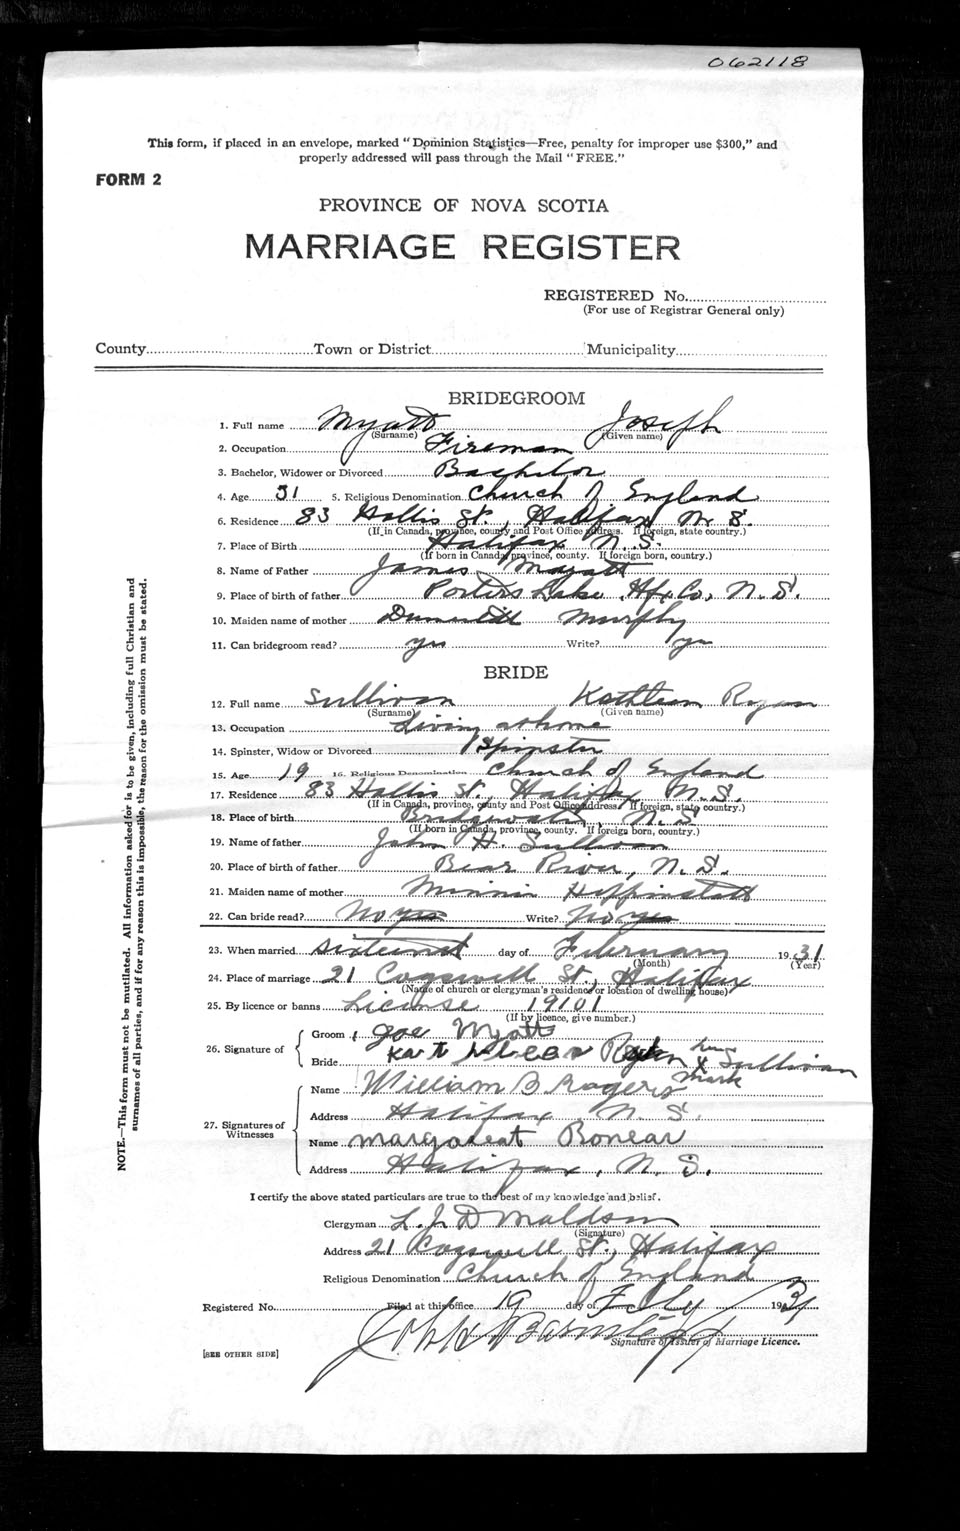 062118
This form, if placed in an envelope, marked "Dominion Statistics—Free, penalty for improper use $300," and
properly addressed will pass through the Mail "FREE."
FORM 2
PROVINCE OF NOVA SCOTIA
MARRIAGE REGISTER
REGISTERED No.
(For use of Registrar General only)
County Town or District Municipality
BRIDEGROOM
1. Full name Myatt Joseph
(Surname) (Given name)
2. Occupation Fireman
3. Bachelor, Widower or Divorced Bachelor
4. Age 51 5. Religious Denomination Church of England
6. Residence 83 Hollis St., Halifax N. S.
(If in Canada, province, county and Post Office address. If foreign, state country.)
7. Place of Birth Halifax N. S.
(If born in Canada, province, county. If foreign born, country.)
8. Name of Father James Myatt
9. Place of birth of father Porters Lake, Hfx Co., N. S.
10. Maiden name of mother Murphy
11. Can bridegroom read? yes Write? yes
BRIDE
12. Full name Sullivan Kathleen Regan
(Surname) (Given name)
13. Occupation Living at home
14. Spinster, Widow or Divorced Spinster
15. Age 19 16. Religious Denomination Church of England
17. Residence 83 Hollis St., Halifax N. S.
(If in Canada, province, county and Post Office address. If foreign, state country.)
18. Place of birth Bridgewater, N. S.
(If born in Canada, province, county. If foreign born, country.)
19. Name of father John H. Sullivan
20. Place of birth of father Bear River, N. S.
21. Maiden name of mother Minnie
22. Can bride read? No yes Write? No yes
23. When married sixteenth day of February 1931
(Month) (Year)
24. Place of marriage 21 Cogswell St., Halifax
(Name of church or clergyman's residence or location of dwelling house)
25. By licence or banns License 19101
(If by licence, give number.)
26. Signature of
Groom Joe Myatt
Bride Kathleen her X mark Sullivan
27. Signatures of Witnesses
Name William B Rogers
Address Halifax N. S.
Name Margaret
Address Halifax, N. S.
I certify the above stated particulars are true to the best of my knowledge and belief.
Clergyman L. J. Donaldson
(Signature)
Address 21 Cogswell St., Halifax
Religious Denomination Church of England
Registered No. Filed at this office 19 day of Feby 1931
Signature of Issuer of Marriage Licence.
[SEE OTHER SIDE]
NOTE.—This form must not be mutilated. All information asked for is to be given, including full Christian and
surnames of all parties, and if for any reason this is impossible, the reason for the omission must be stated.